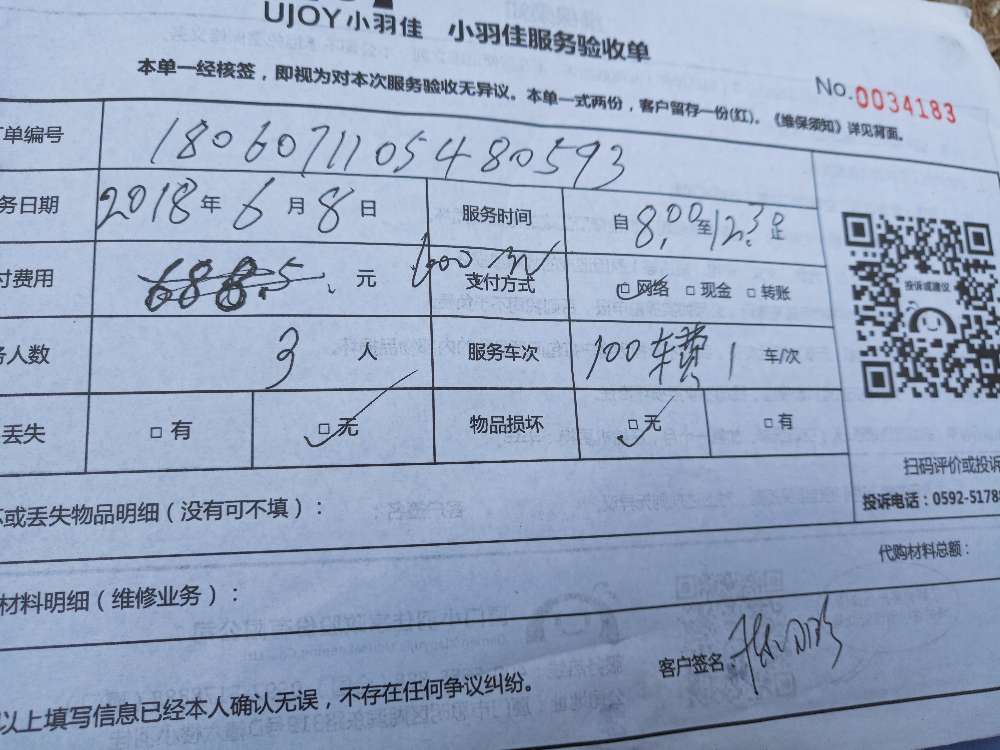 UJOY小羽佳 小羽佳服务验收单
本单一经核签，即视为对本次服务验收无异议。本单一式两份，客户留存一份(红)。《维保须知》详见背面。
No.0034183
单编号 180607110 5480593
务日期 2018年6月8日 服务时间 自8.00至12.30止
付费用 688.5元 1000元 支付方式 □网络 □现金 □转账
务人数 3人 服务车次 100车费 1 车/次
丢失 □有 □无 物品损坏 □无 □有
投诉或建议
扫码评价或投诉
投诉电话：0592-5178
坏或丢失物品明细（没有可不填）：
代购材料总额：
材料明细（维修业务）：
客户签名
以上填写信息已经本人确认无误，不存在任何争议纠纷。